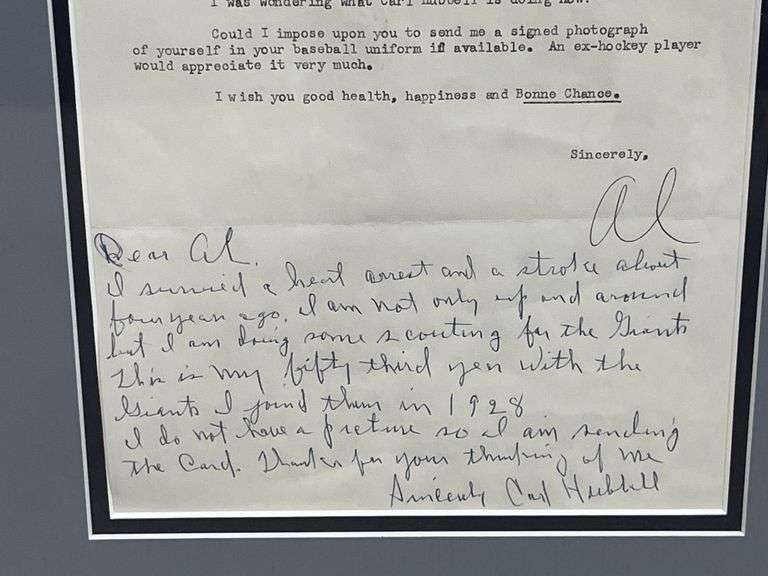 I was wondering what Carl Hubbell is doing now.
Could I impose upon you to send me a signed photograph
of yourself in your baseball uniform if available. An ex-hockey player
would appreciate it very much.
I wish you good health, happiness and Bonne Chance.
Sincerely,
Al
Dear Al.
I survied a heat arrest and a stroke about
four year ago. I am not only up and around
but I am doing some scouting for the Giants
This is my fifty third year with the
Giants I joind them in 1928
I do not have a picture so I am sending
the Card. Thanks for your thinking of me
Sincerely Carl Hubbell